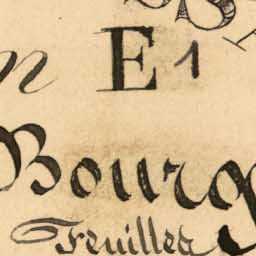 n E 1
Bourg
Feuillea